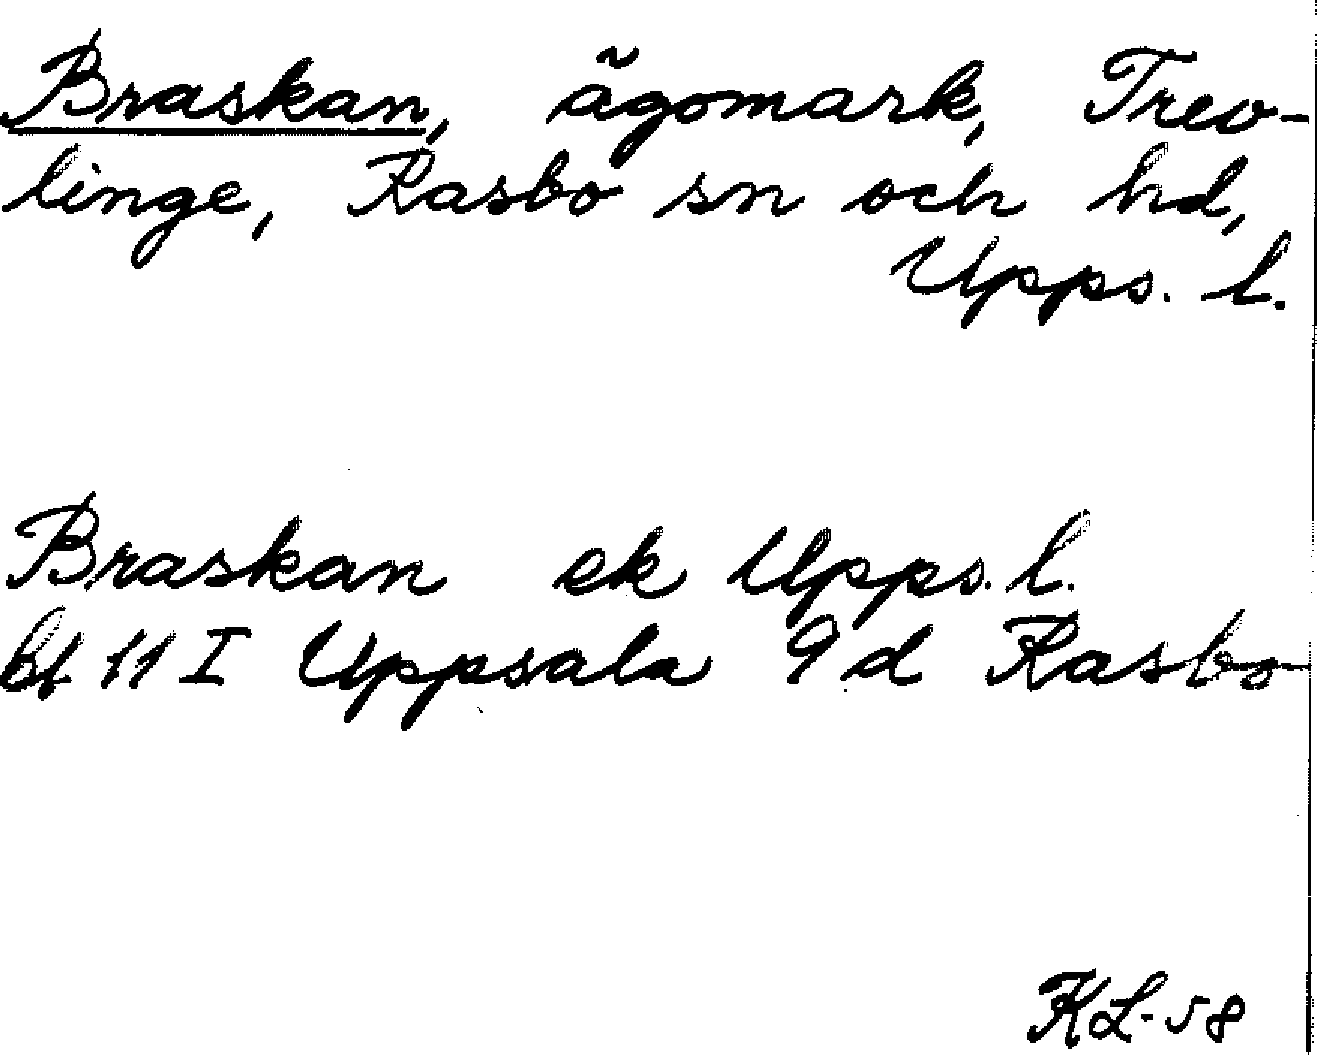 Braskan, ägomark, Trev-
linge, Rasbo sn och hd,
Upps. l.
Braskan ek Upps. l.
bl 11 I Uppsala 9 d Rasbo
KL-58